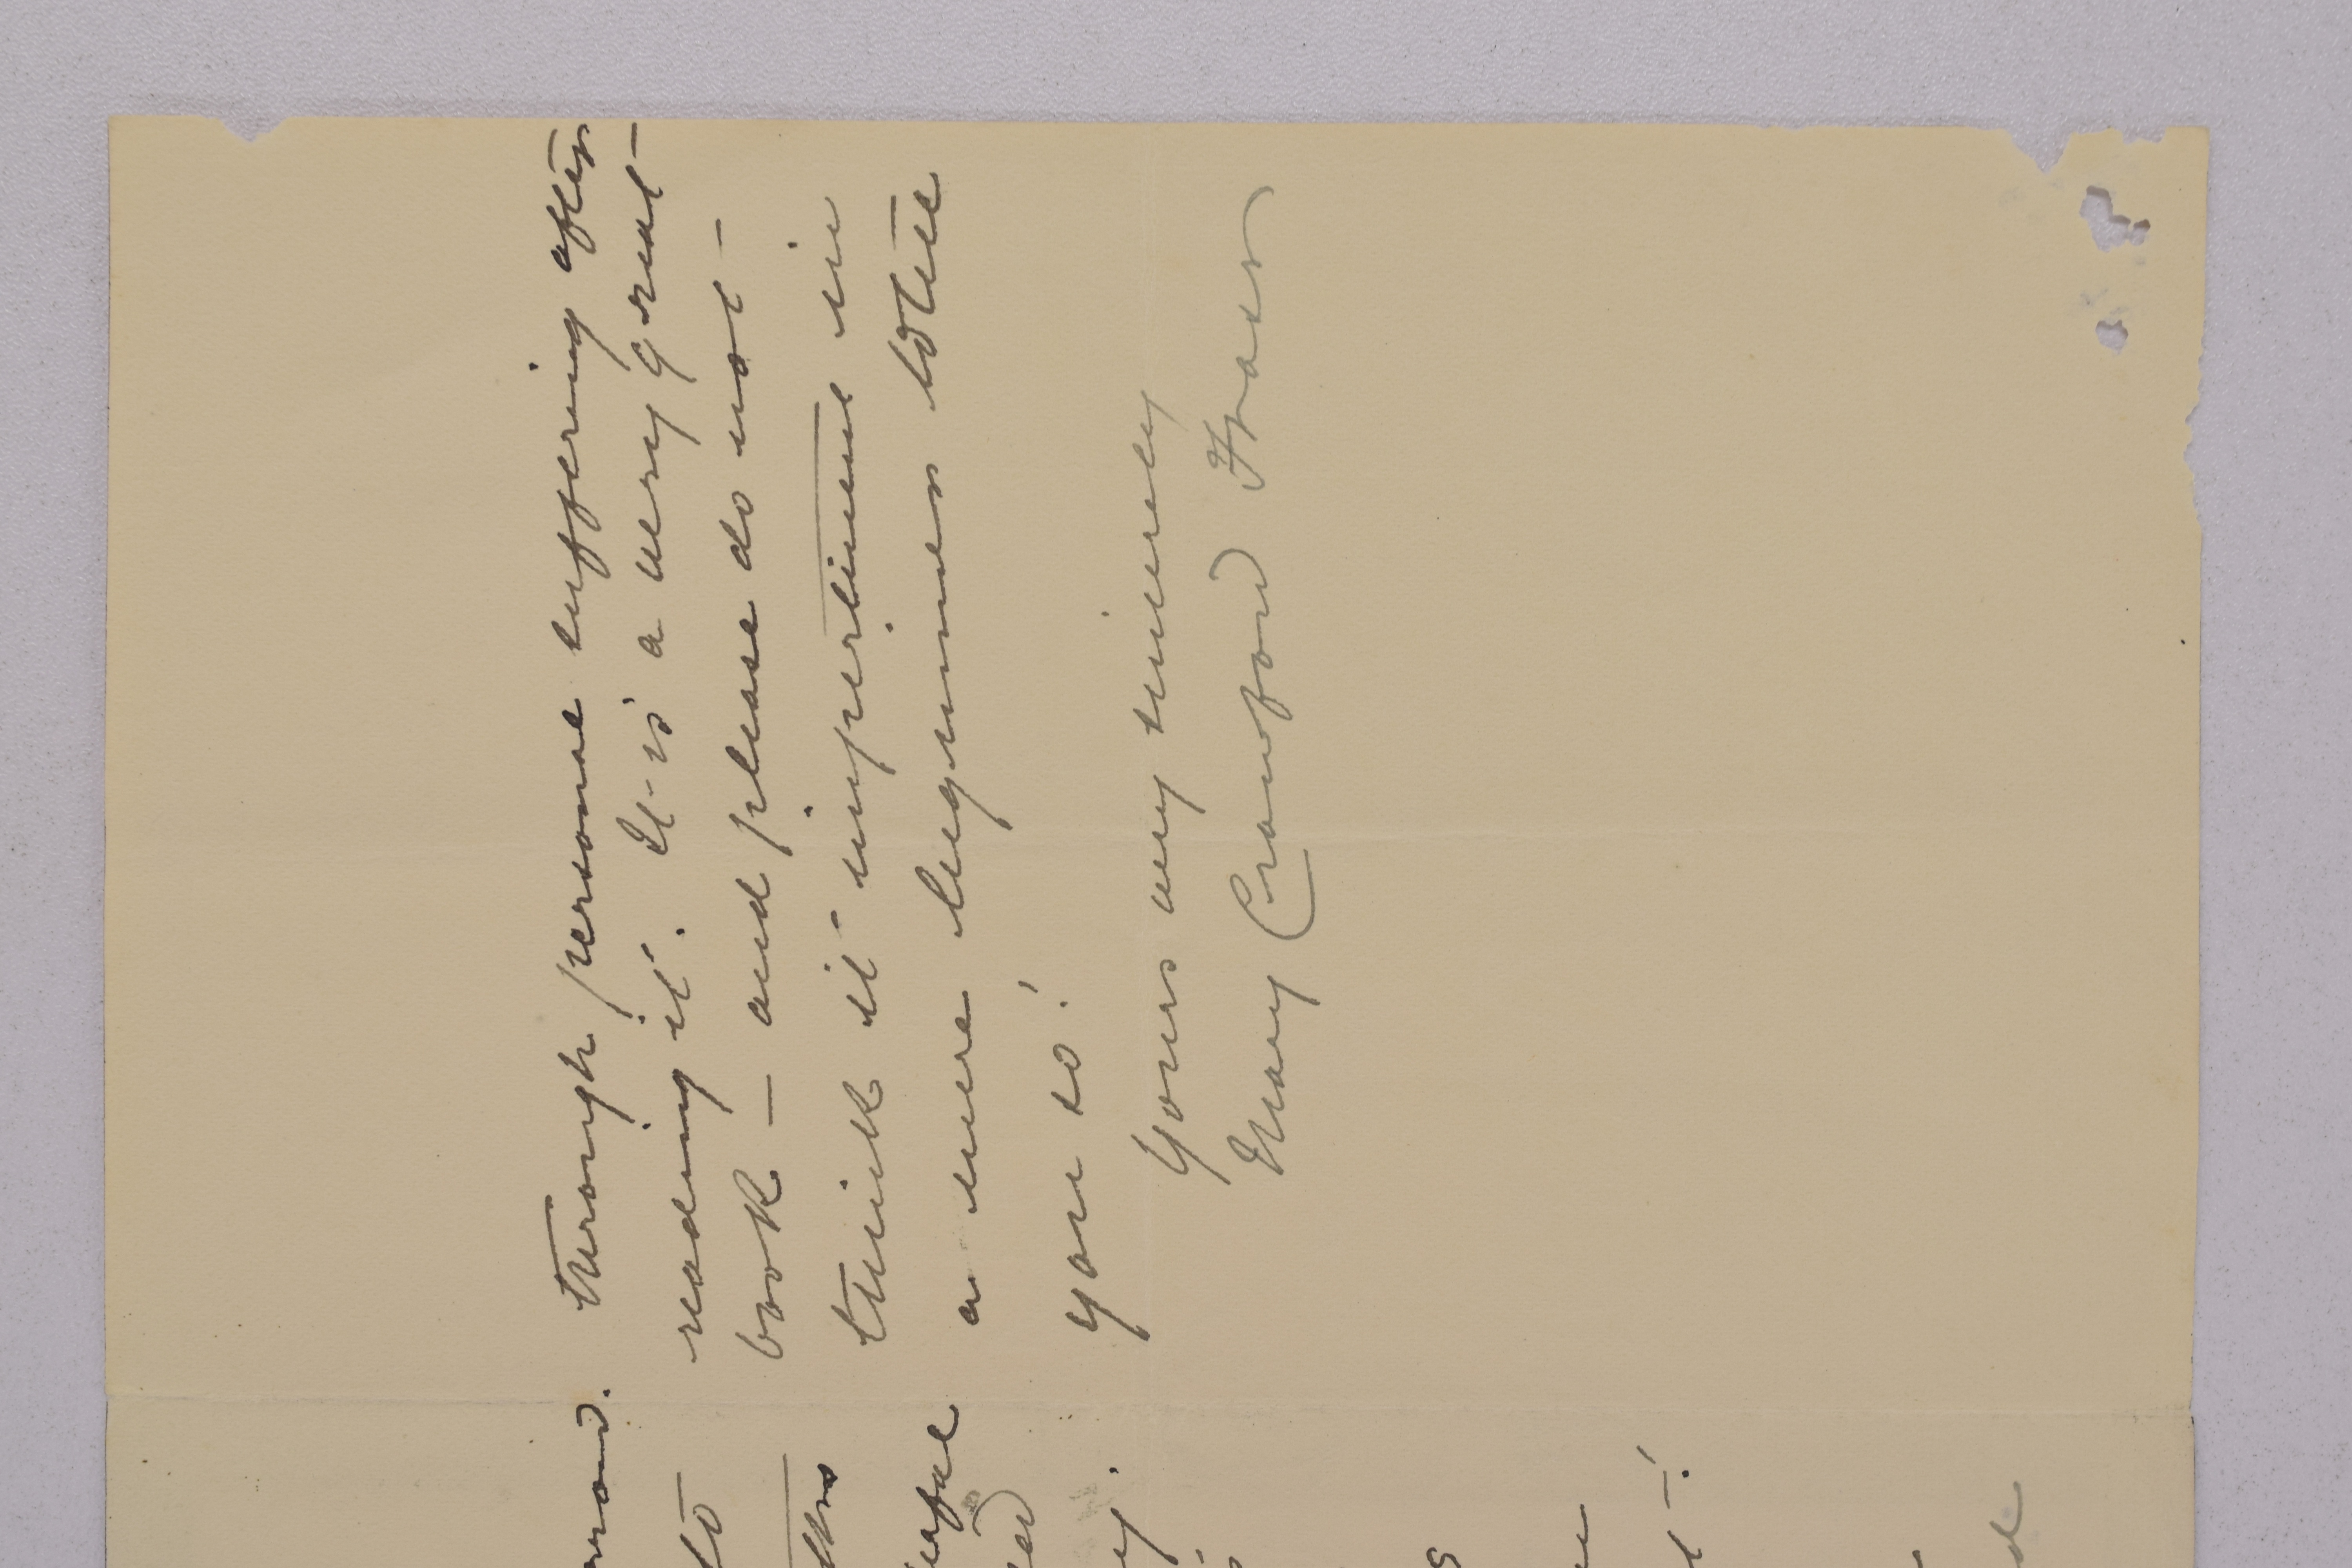 through personal suffering after
reading it. It is a very great
book – and please do not
think it impertinent in
a mere beginner to tell
you so!
Yours very sincerely
Mary Crawford Fraser